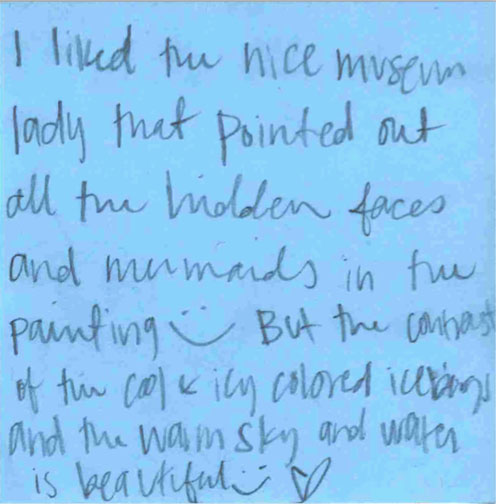 I liked the nice museum
lady that pointed out
all the hidden faces
and mermaids in the
painting :) But the contrast
of the cool & icy colored icebergs
and the warm sky and water
is beautiful :) ♡